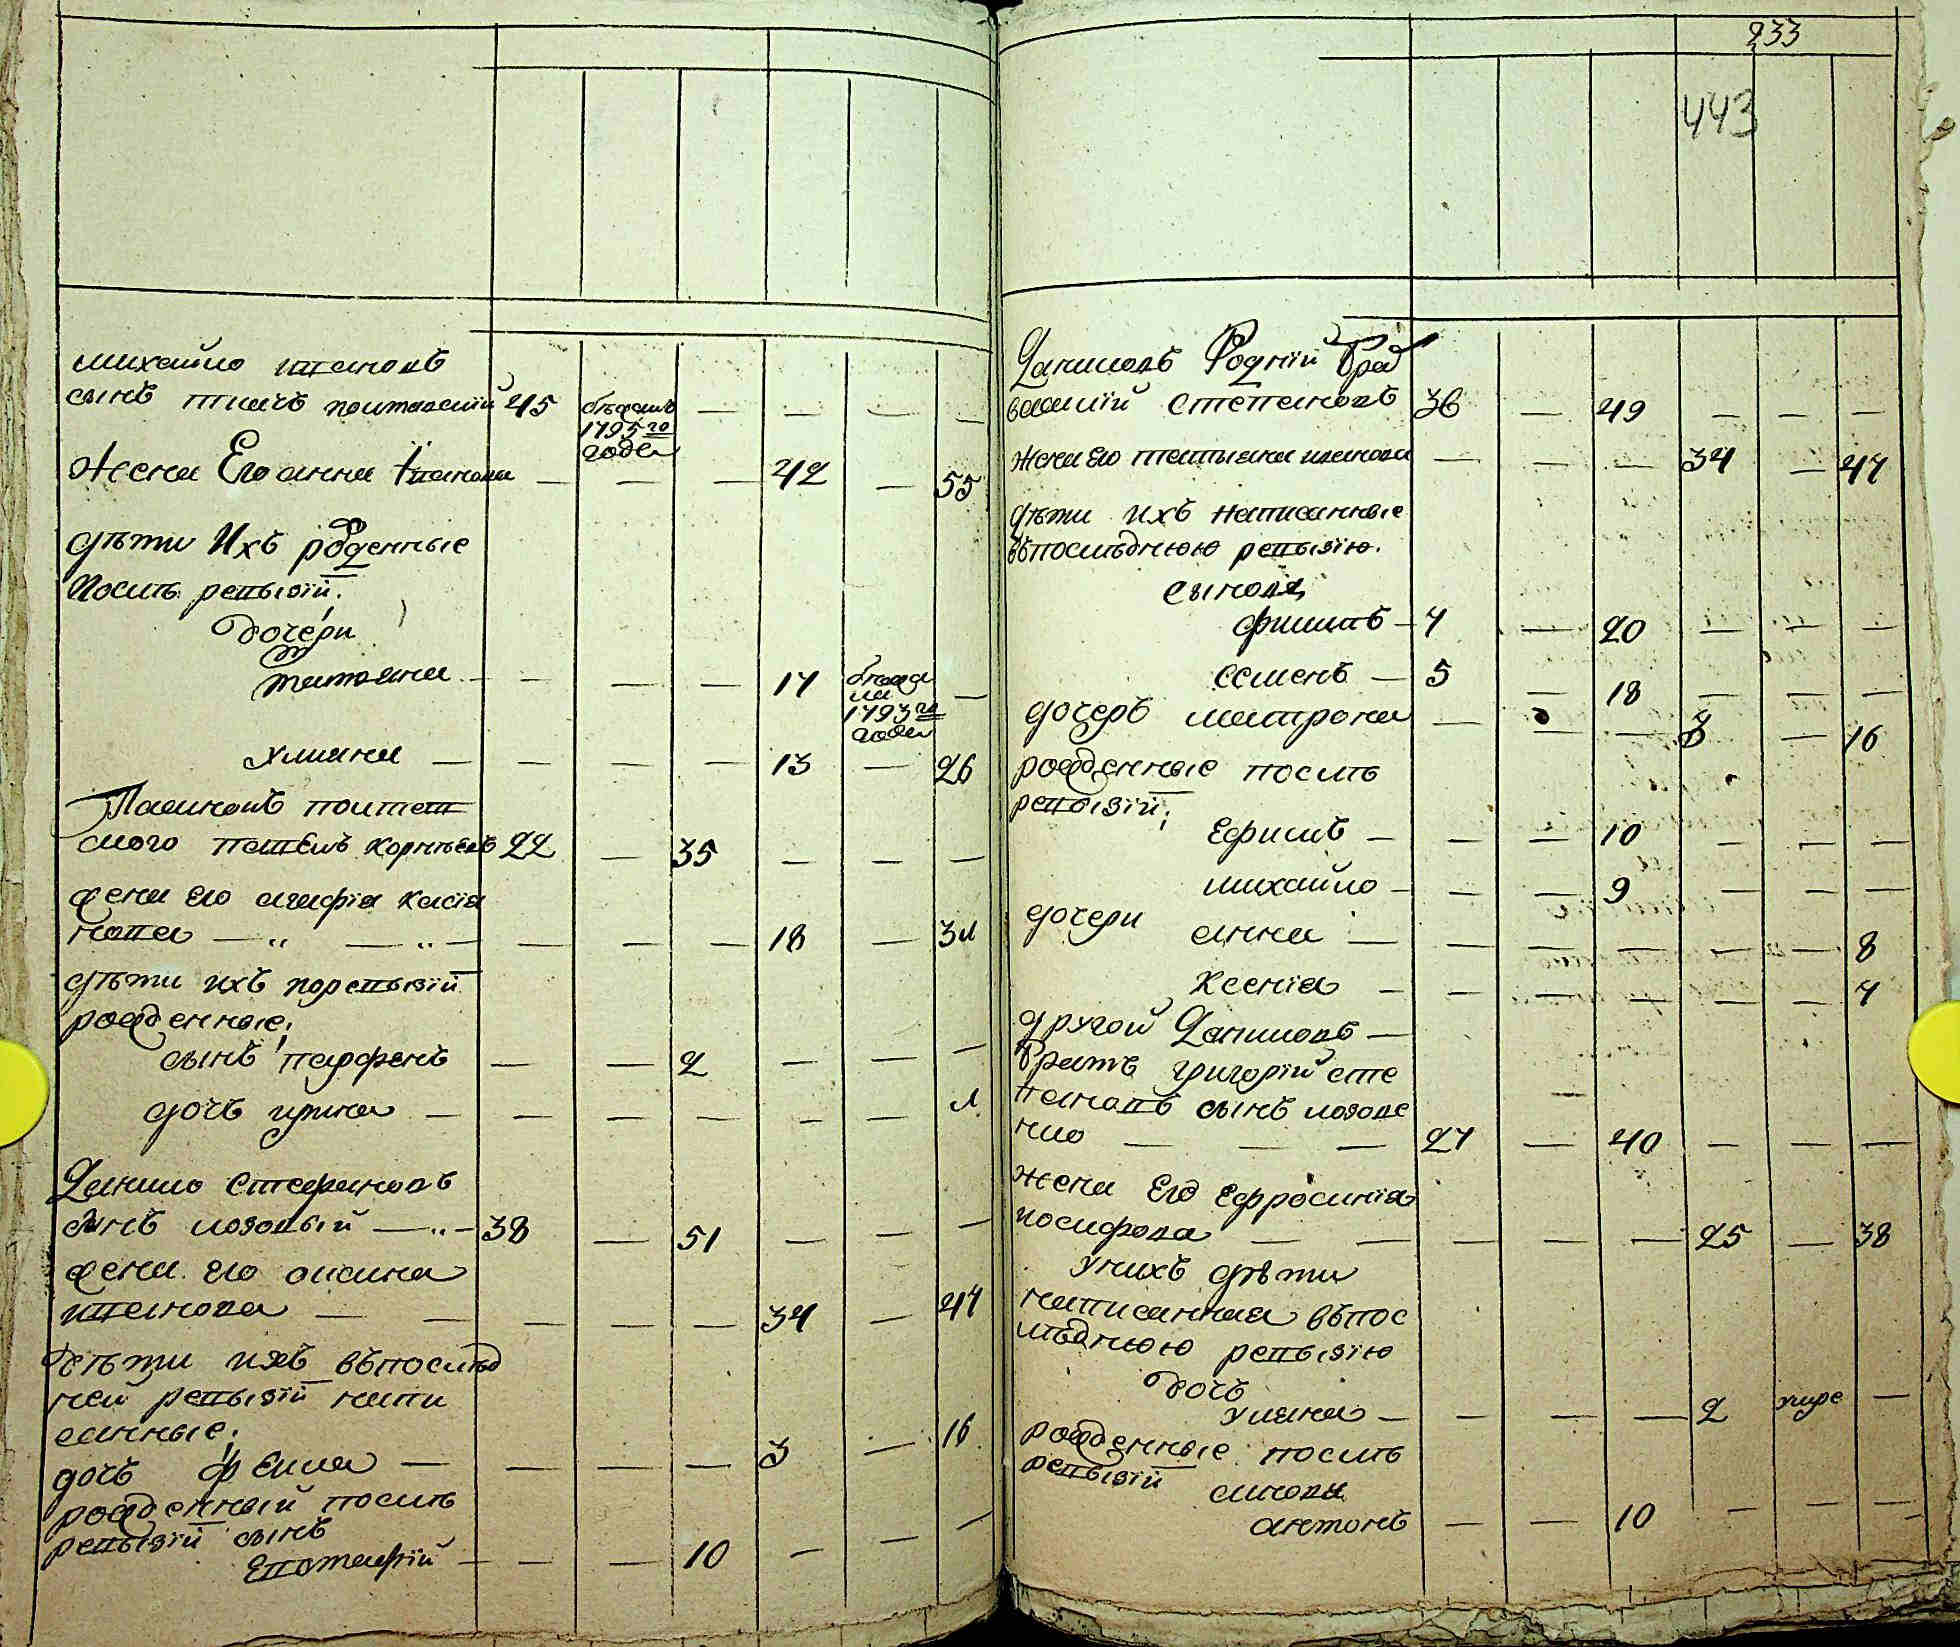 михайло ивановъ
сынъ ткачъ полтавскій 45 бѣжалъ — — — —
1795 го
года
жена Его анна Iванова — — — 42 — 55
дѣти Ихъ рожденные
послѣ ревизiй:
дочери
татьяна — — — — 17 бежала —
1793 го
года
ульяна — — — — 13 — 26
сего павелъ корнѣевъ 22 — 35 — — —
жена его агафiя касiа
нова — — — — — 18 — 31
дѣти ихъ по ревизiй
рожденные:
сынъ парфенъ — — 2 — — —
дочь ирина — — — — — — 1
Данило Стефановъ
сынъ лозовый — 38 — 51 — — —
жена его оксана
иванова — — — — — 34 — 47
дѣти ихъ въпослѣд
ней ревизiй напи
санные:
дочь — — — — 3 — 16
рожденный послѣ
ревизiй сынъ
Евстафiй — — — 10 — — —
233
443
Даниловъ Родній Брат
василiй степановъ 36 — 49 — — —
жена Его татьяна иванова — — — 34 — 47
дѣти ихъ написанные
въпослѣднюю ревизiю.
сыновя
филипъ — 7 — 20 — — —
семенъ — 5 — 18 — — —
дочерь матрона — — — 3 — 16
рожденные послѣ
ревизiй:
Ефимъ — — — 10 — — —
михайло — — — 9 — — —
дочери анна — — — — — — 8
Ксенiя — — — — — — 7
другой Даниловъ —
братъ григорiй сте
пановъ сынъ лозове
нко — — — 27 — 40 — — —
жена Его Ефросинiя
иосифова — — — — — 25 — 38
Унихъ дѣти
написанная въпос
лѣднюю ревизiю
дочь
уляна — — — — 2 умре —
рожденные послѣ
ревизiй синовя
антонъ — — 10 — — —